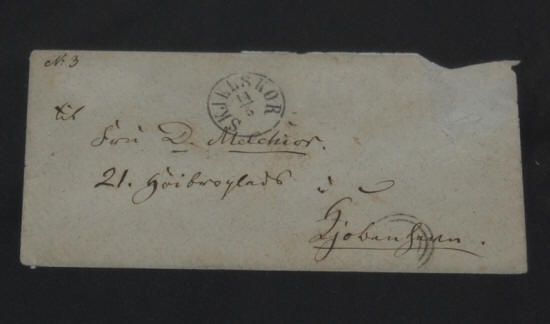 N. 3
SKJELSKØR
til
Fru D. Melchior.
21. Höibroplads
Kjobenhavn.